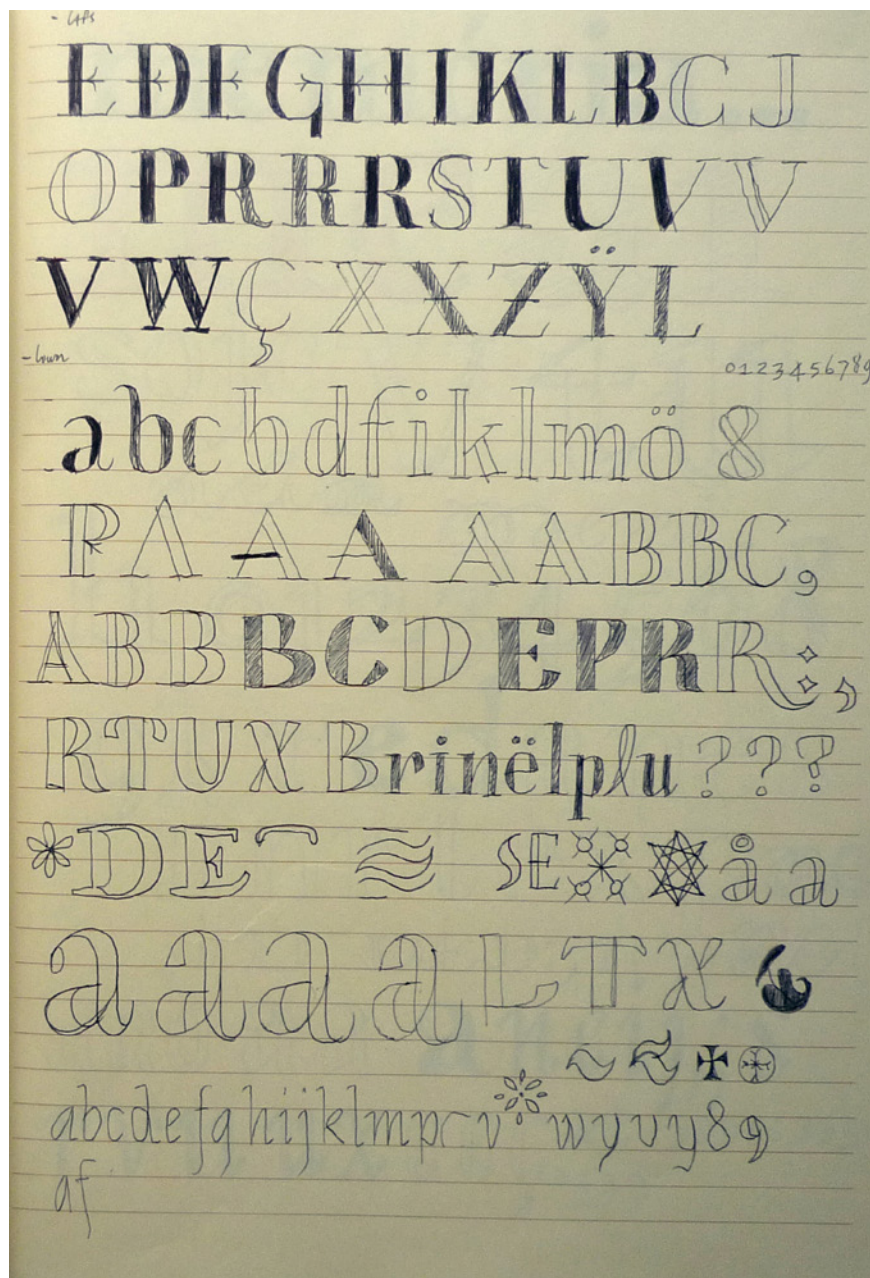 - CAPS
E D E F G H I K L B C J
O P R R R S T U V V
V W Ç X X Z Ÿ L
- lower
0 1 2 3 4 5 6 7 8 9
a b c b d f i k l m ö 8
P Λ A A A A B B C ,
A B B B C D E P R R : ,
R T U X B r i n ë l p l u ? ? ?
* D E S E å a
a a a a L T X
a b c d e f g h i j k l m p r v w y v y 8 9
a f